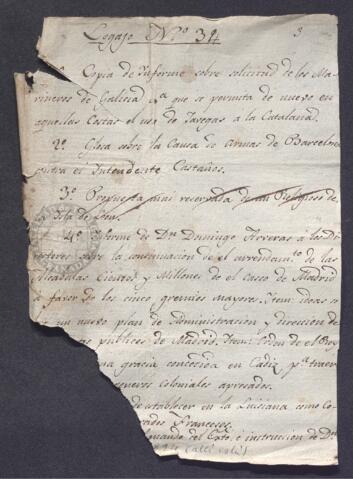 Legajo Nº 34
3
1º Copia de Informe sobre solicitud de los Ma-
rineros de Galicia pª que se permita de nuevo en
aquellas Costas el uso de a la Catalana.
2º. Glosa sobre la Causa de Armas de Barcelona
contra el Intendente Castaños.
3º Propuesta mui reservada de un Religioso de
Isla de Leon.
4º Informe de Dn Domingo a los Di-
rectores sobre la continuacion de el arrendamto de las
Alcabalas Cientos y Millones de el Casco de Madrid
a favor de los cinco gremios Mayores. Item: ideas s
un nuevo plan de Administracion y direccion de
publicas de Madrid. Item: Orden de el Rey
una gracia concedida en Cadiz pª traer
generos Coloniales apresados.
de establecer en la Luisiana como Co-
Franceses.
mando del Exto. e instruccion de Dn